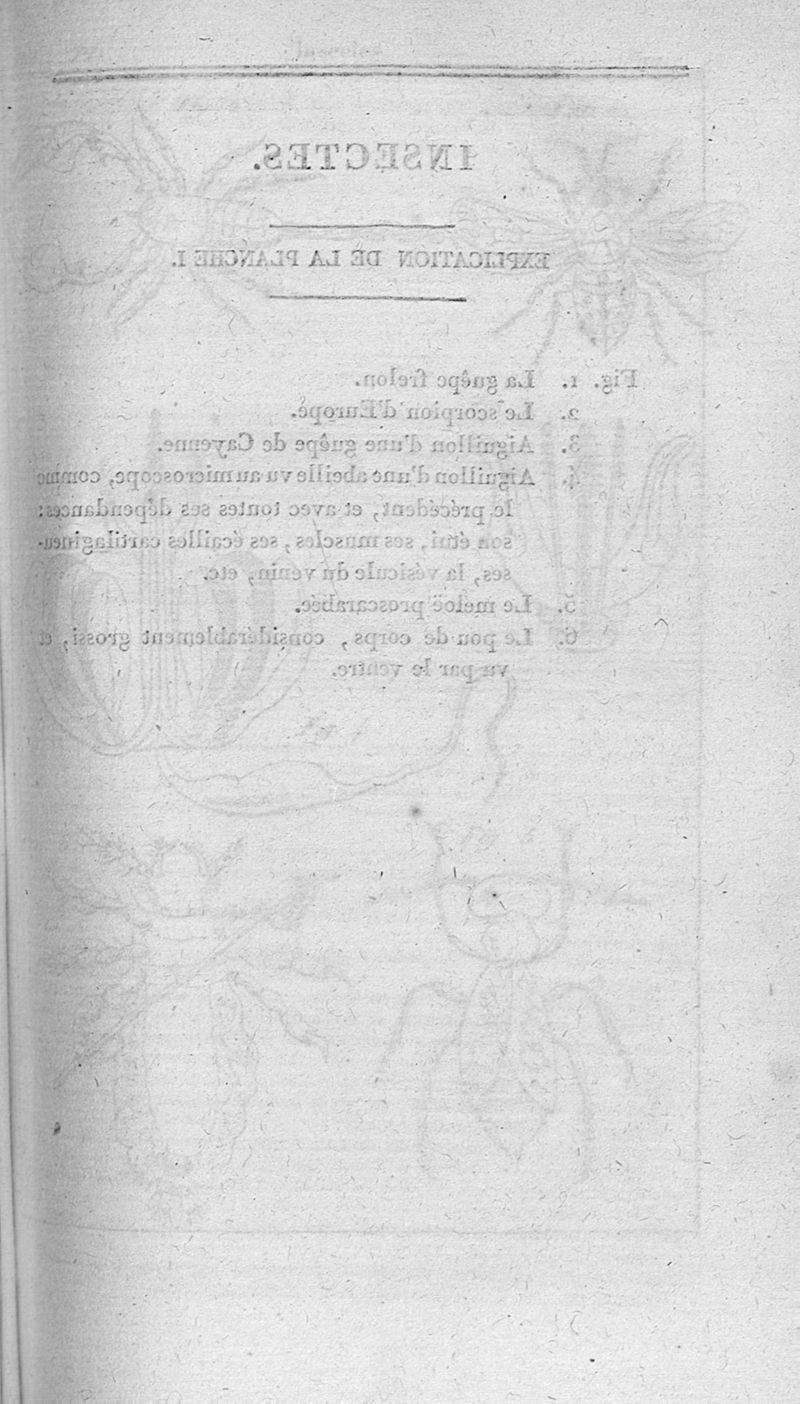 INSECTES.
EXPLICATION DE LA PLANCHE I.
Fig. 1. La guêpe frelon.
2. Le scorpion d'Europe.
3. Aiguillon d'une guêpe de Cayenne.
4. Aiguillon d'une abeille vu au microscope, comme
le précédent, et avec toutes ses dépendances:
son étui, ses muscles, ses écailles cartilagineu-
ses, la vésicule du venin, etc.
5. Le meloë proscarabée.
6. Le pou de corps, considérablement grossi, et
vu par le ventre.